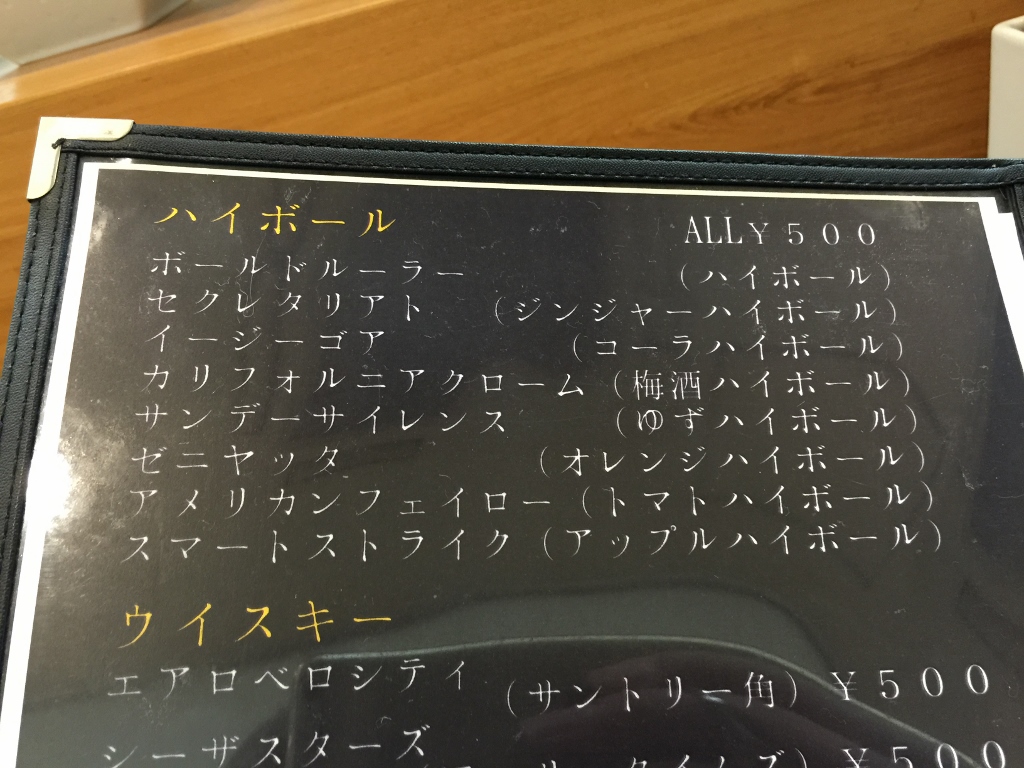 ハイボール ALL￥５００
ボールドルーラー （ハイボール）
セクレタリアト （ジンジャーハイボール）
イージーゴア （コーラハイボール）
カリフォルニアクローム（梅酒ハイボール）
サンデーサイレンス （ゆずハイボール）
ゼニヤッタ （オレンジハイボール）
アメリカンフェイロー（トマトハイボール）
スマートストライク（アップルハイボール）
ウイスキー
エアロベロシティ （サントリー角）￥５００
シーザスターズ ￥５００